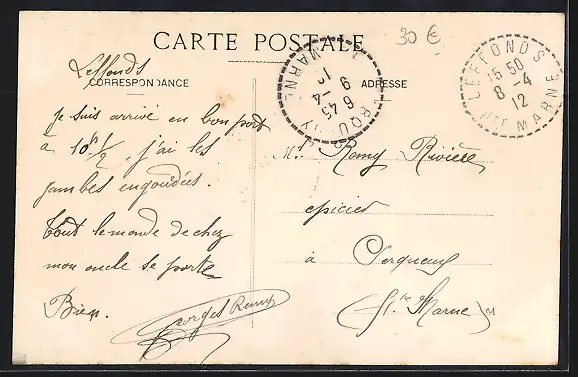 CARTE POSTALE
30 €
Leffonds
CORRESPONDANCE
ADRESSE
LEFFONDS
15 50
8 -4
12
HTE MARNE
MARNE
6 45
9 -4
12
Je suis arrivé en bon port
à 10h 1/2, j'ai les
jambes engourdies.
Tout le monde de chez
mon oncle se porte
Bien.
Georges Remy
Mr Remy Rivière
epicier
à Serqueux
(Hte Marne)